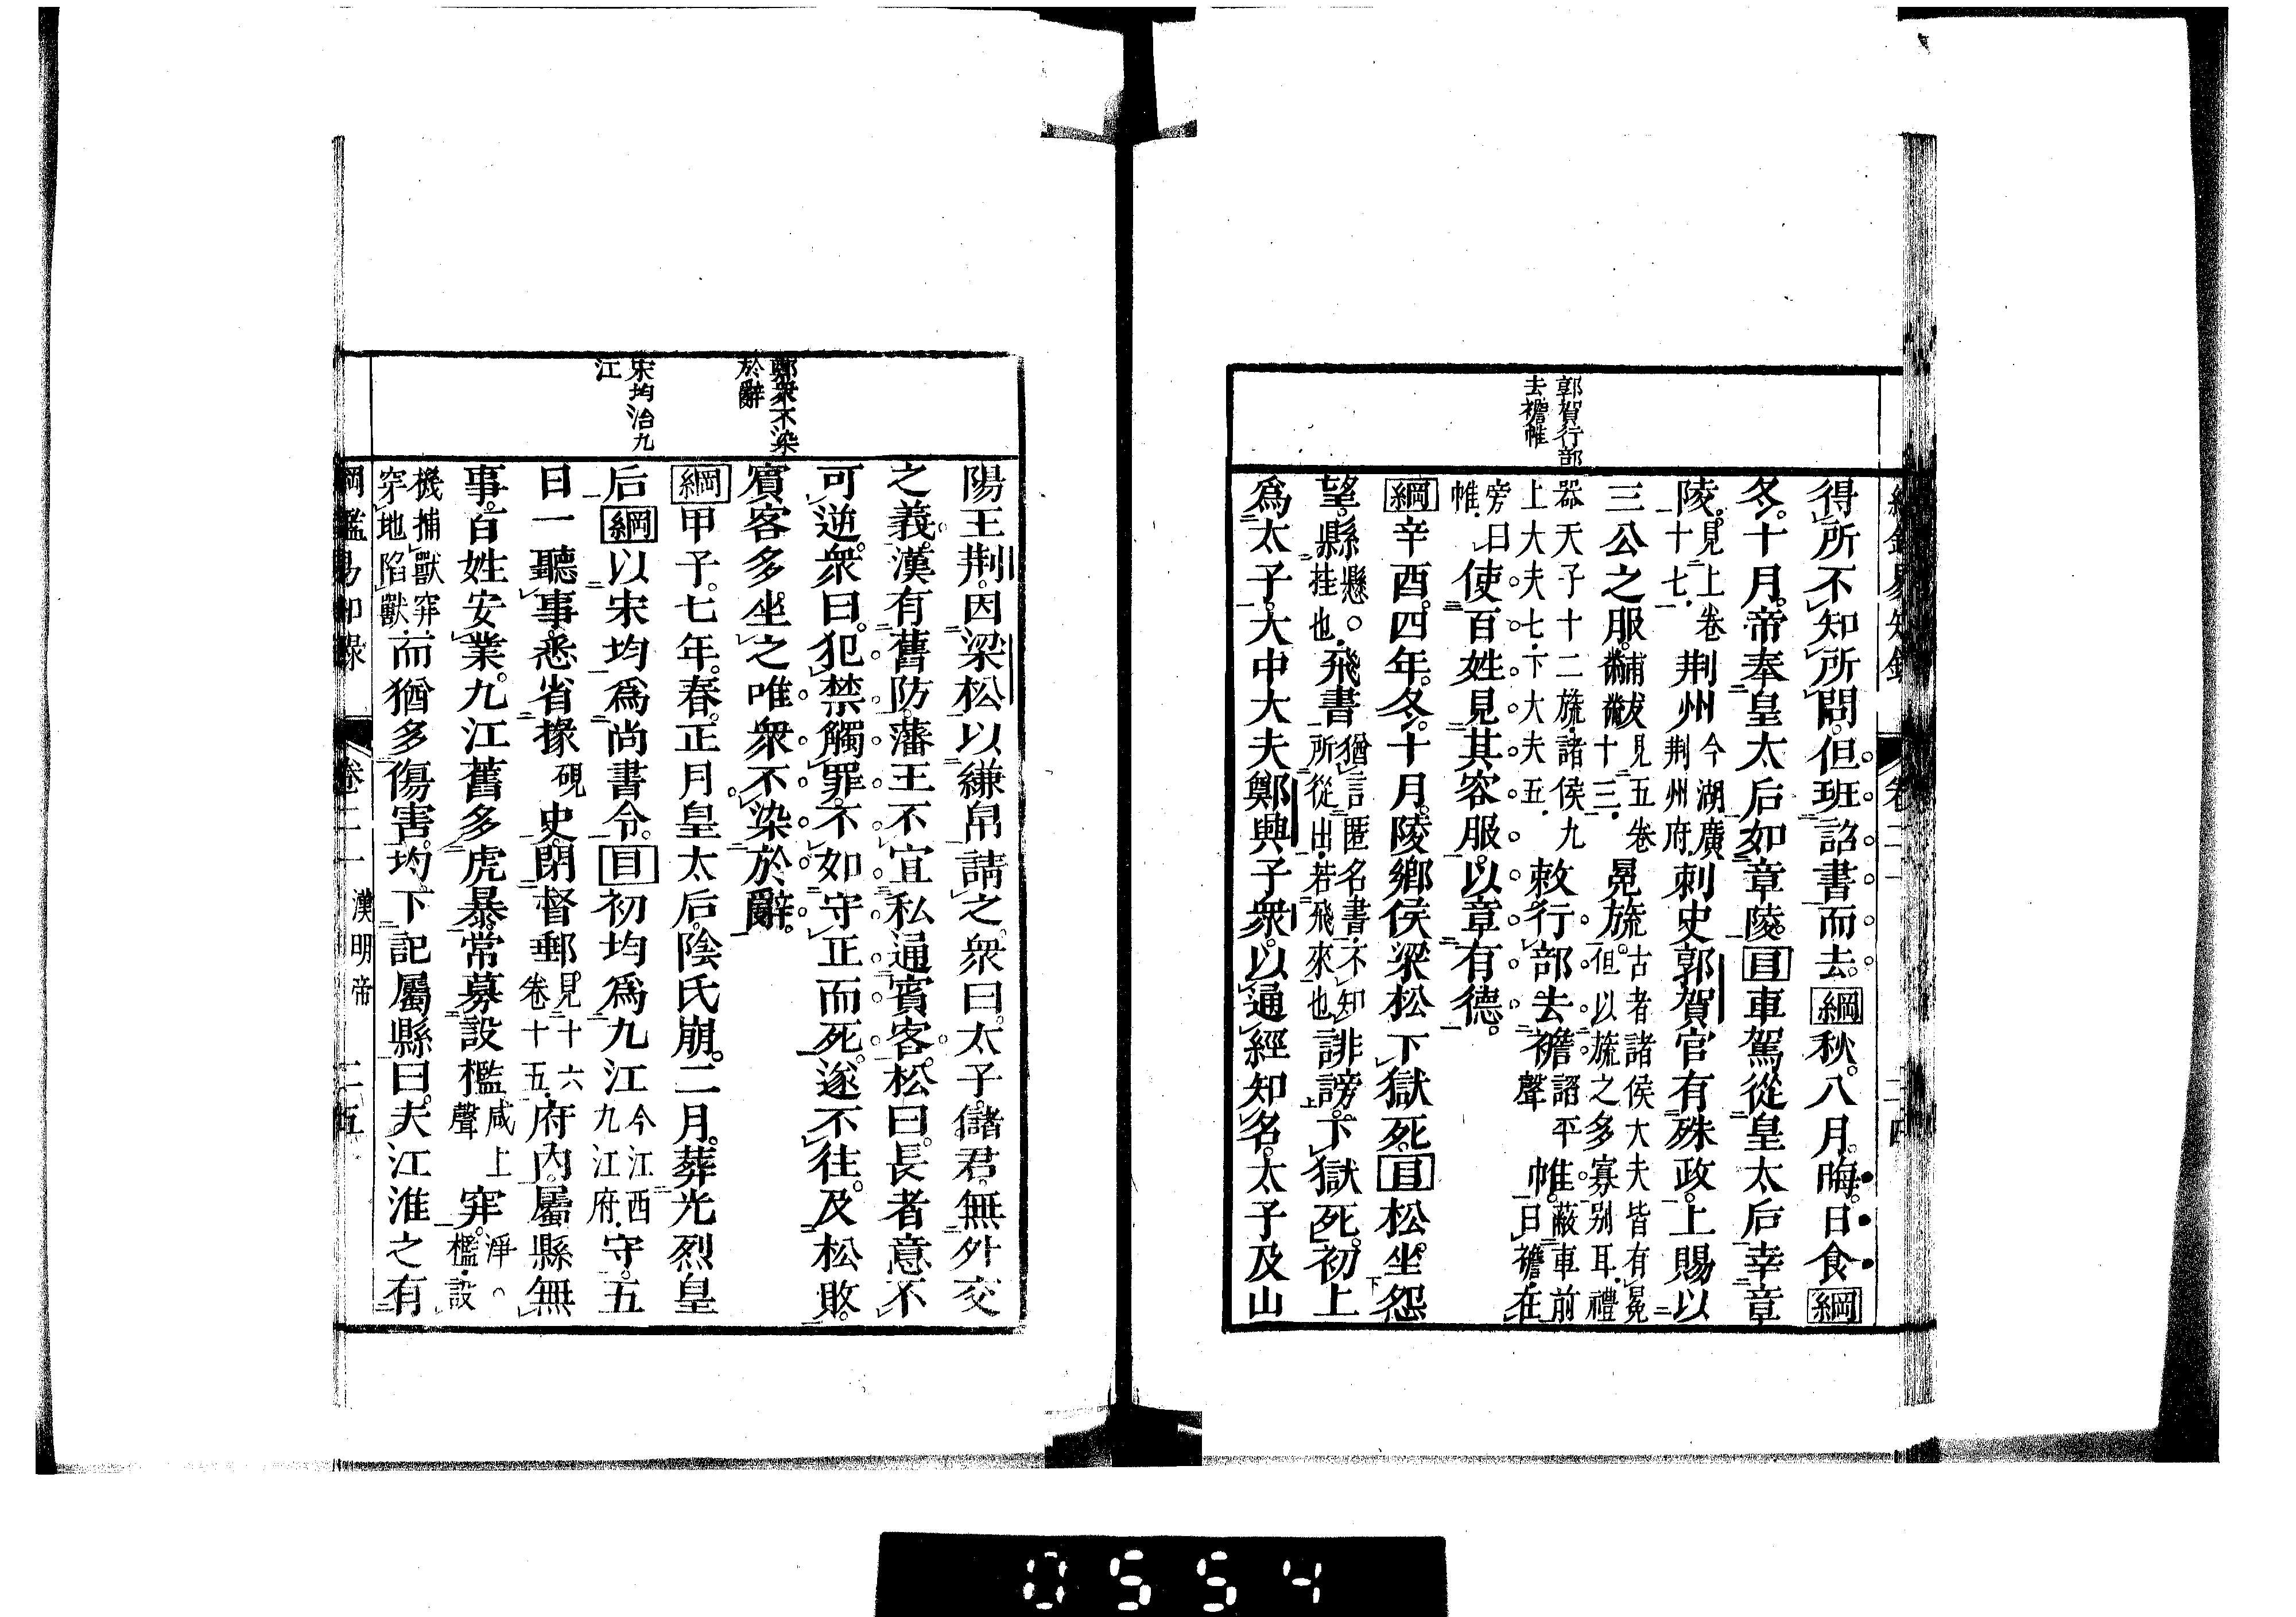 郭賀行部
去襜帷
得所不知所問但班詔書而去。綱秋八月晦日食綱
冬十月帝奉皇太后如章陵。目車駕從皇太后幸章
陵。見上卷十七。荆州今湖廣荆州府。刺史郭賀官有殊政。上賜以
三公之服。黼黻見五卷十三。冕旒。古者諸侯大夫皆有冕但以旒之多寡别耳。禮
器天子十二旒。諸侯九上大夫七。下大夫五。敕行部。去襜謟平聲帷。蔽車前曰襜。在
旁曰帷。使百姓見其容服。以章有德。
綱辛酉。四年。冬。十月。陵鄉侯梁松下獄死。目松坐怨
望。縣懸。挂也。飛書猶言匿名書。不知所從出。若飛來也誹謗。下獄死。初上
爲太子。大中大夫鄭興子衆。以通經知名。太子及山
鄭衆不染
於辭
宋均治九
江
陽王荆。因梁松以縑帛請之。衆曰。太子儲君。無外交
之義。漢有舊防。藩王不宜私通賓客。松曰。長者意不
可逆。衆曰。犯禁觸罪。不如守正而死。遂不往。及松敗。
賓客多坐之唯衆不染於辭。
綱甲子。七年。春。正月。皇太后陰氏崩。二月。葬光烈皇
后綱以宋均爲尚書令。目初均爲九江今江西九江府。守。五
日一聽事。悉省掾硯史。閉督郵見十六卷十五。府內。屬縣無
事。百姓安業。九江舊多虎暴。常募設檻咸上聲穽。淨。檻。設
機捕獸穽。穿地陷獸。而猶多傷害。均下記屬縣曰。夫江淮之有
綱鑑易知錄 卷二一 漢明帝 二五
0554